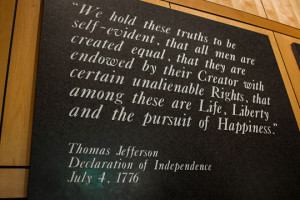 “We hold these truths to be
self-evident, that all men are
created equal, that they are
endowed by their Creator with
certain unalienable Rights, that
among these are Life, Liberty
and the pursuit of Happiness.”
Thomas Jefferson
Declaration of Independence
July 4, 1776